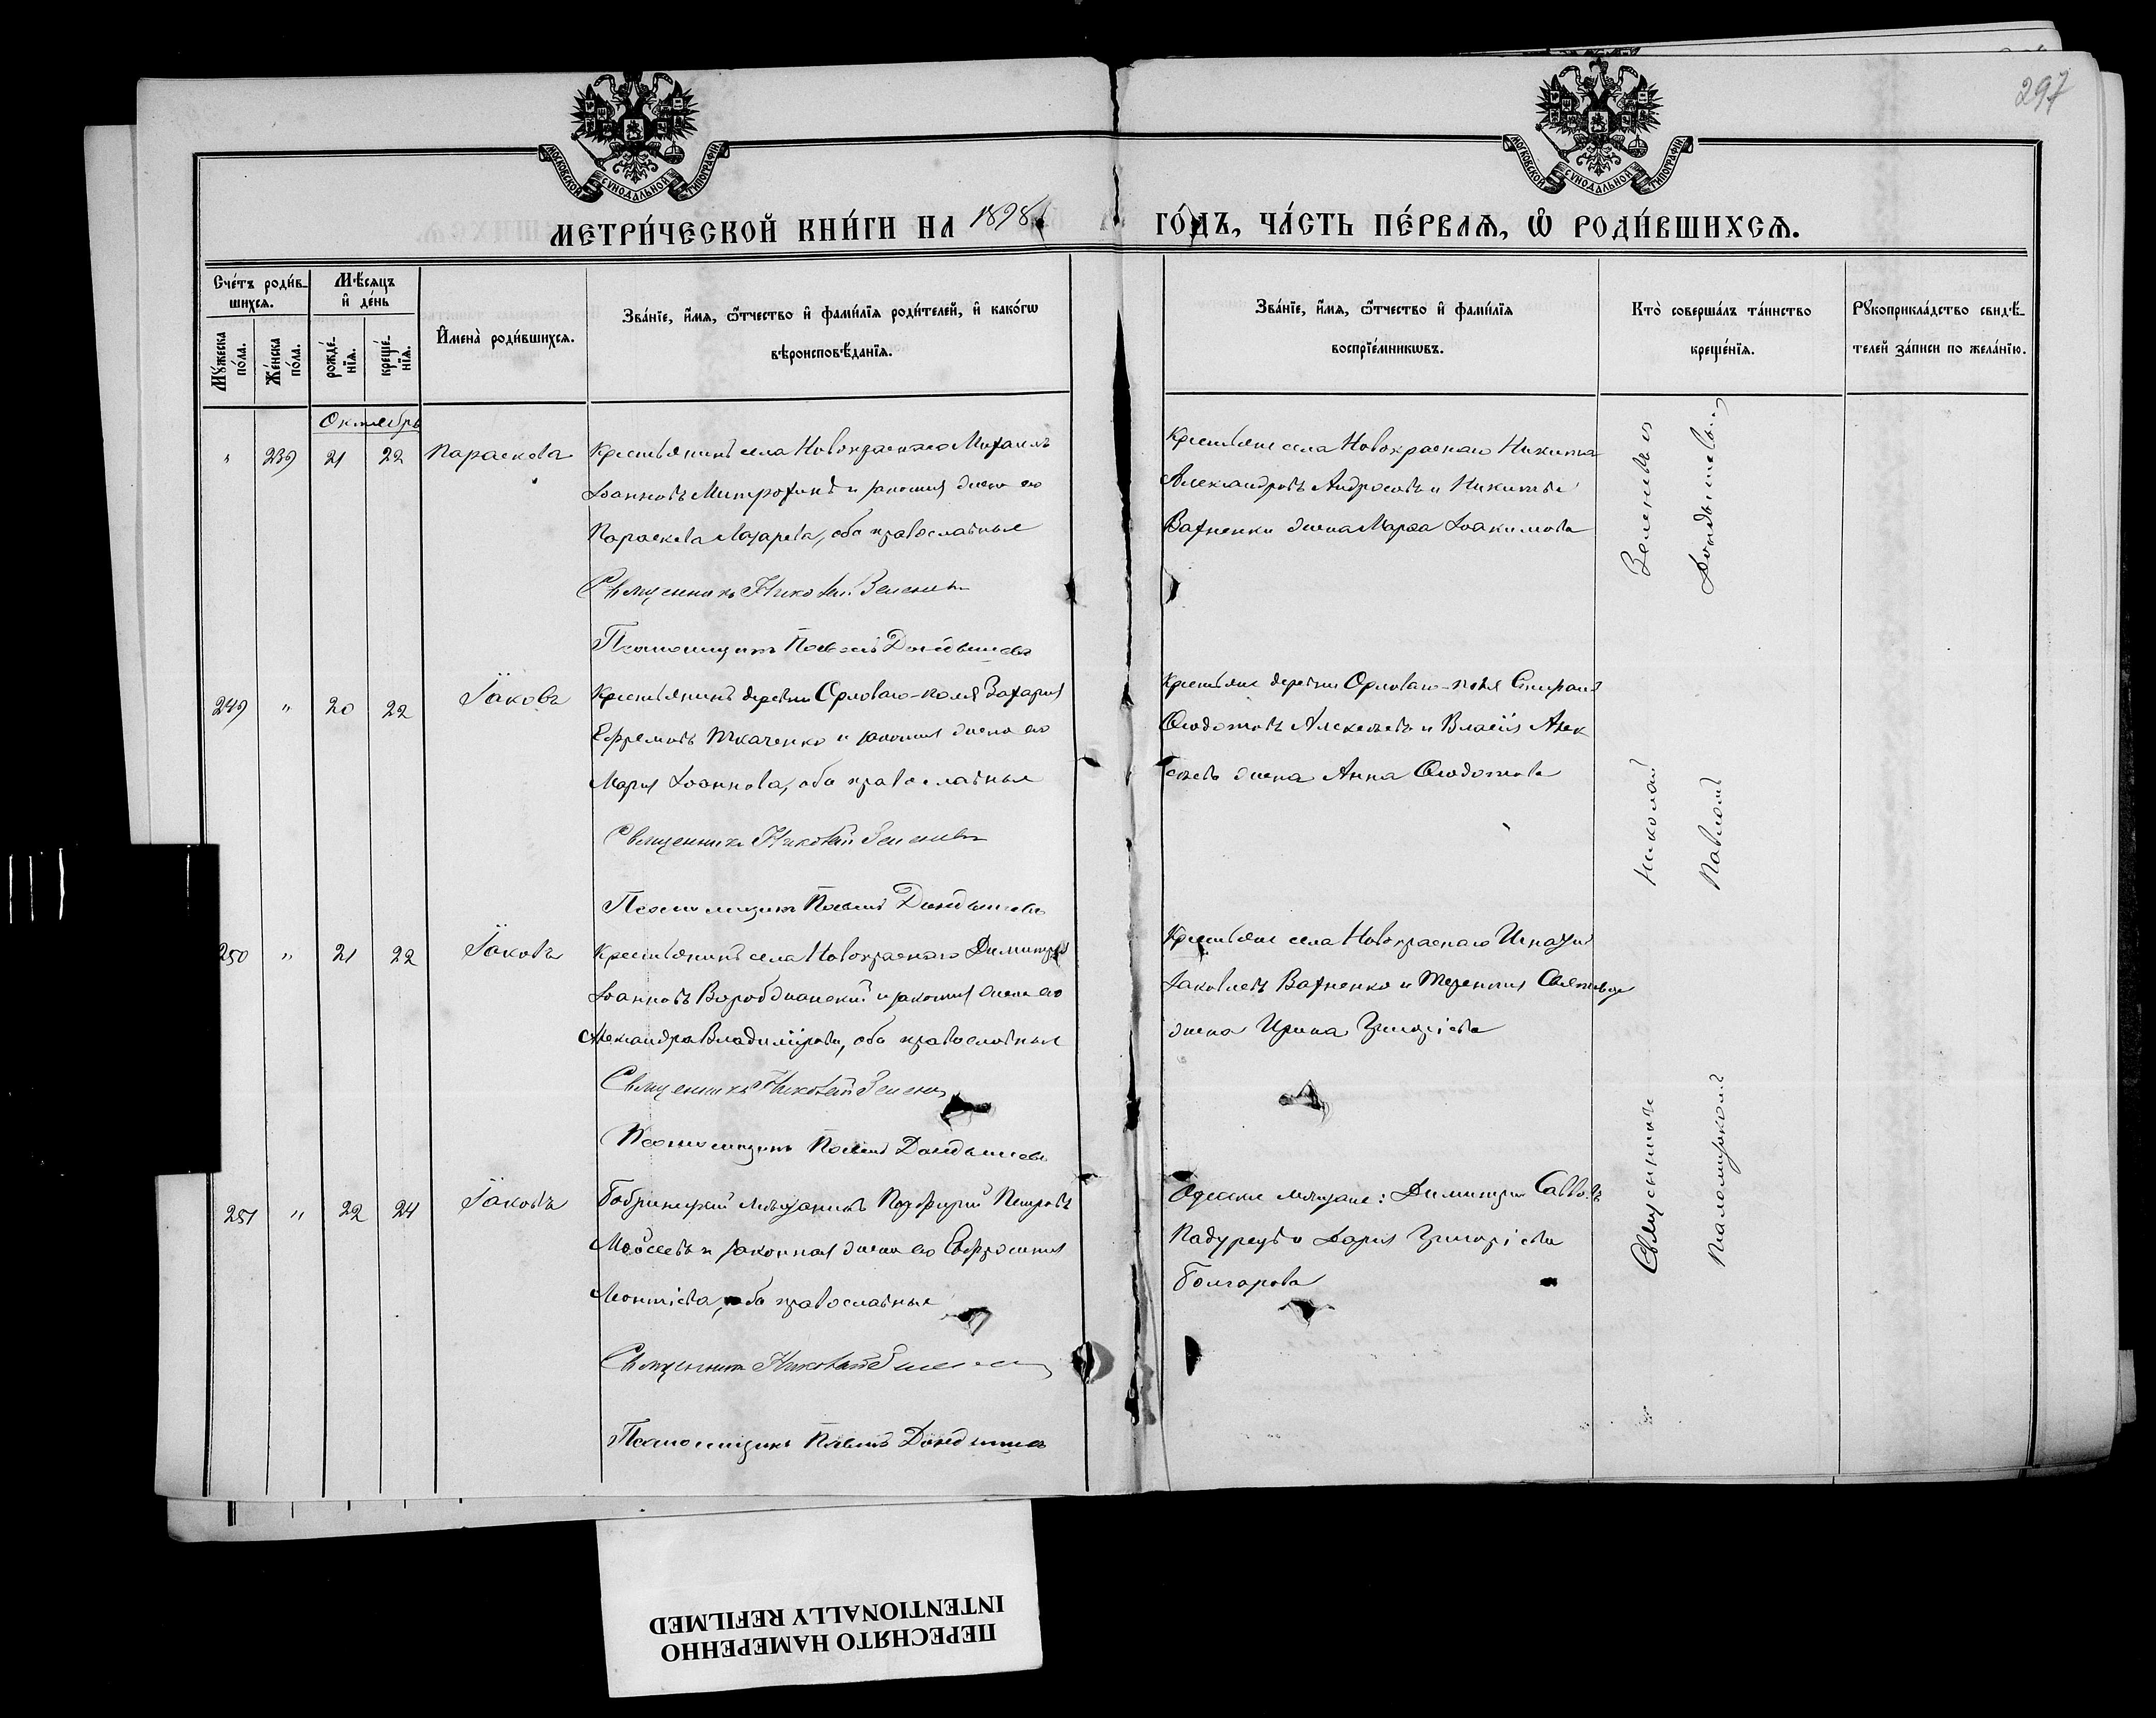 297
МОСКОВСКОЙ СѴНОДАЛЬНОЙ ТИПОГРАФІИ
МОСКОВСКОЙ СѴНОДАЛЬНОЙ ТИПОГРАФІИ
МЕТРИ́ЧЕСКОЙ КНИ́ГИ НА 1898 ГО́ДЪ, ЧА́СТЬ ПЕ́РВАѦ, Ѡ҆ РОДИ́ВШИХСѦ.
Сче́тъ роди́в-
шихсѧ.
Мѣ́сѧцъ
и҆ де́нь
Мꙋ́жеска по́ла.
Же́нска по́ла.
рожде́-нїѧ.
креще́-нїѧ.
И҆мена̀ роди́вшихсѧ.
Зва́нїе, и҆́мѧ, ѻ҆́тчество и҆ фами́лїѧ роди́телей, и҆ како́гѡ
вѣроисповѣ́данїѧ.
Зва́нїе, и҆́мѧ, ѻ҆́тчество и҆ фами́лїѧ
воспрїе́мникѡвъ.
Кто̀ соверша́лъ та́инство
креще́нїѧ.
Рꙋкоприкла́дство свидѣ́-
телей за́писи по жела́нїю.
Октябрь
" 239 21 22 Параскева
Крестьянинъ села Новокраснаго Михаилъ
Іоанновъ Митрофинъ и законная жена его
Параскева Лазарева, оба православные
Священникъ Николай Зеленъ
Псаломщикъ Павелъ
Крестьяне села Новокраснаго Никита
Александровъ Андросовъ и Никиты
Вахненки жена Марѳа Іоакимова
249 " 20 22 Іаковъ
Крестьянинъ деревни Орловаго-поля Захарія
Ефремовъ Ткаченко и законная жена его
Марія Іоаннова, оба православные
Священникъ Николай
Псаломщикъ Павелъ
Крестьяне деревни Орловаго-поля Спиридонъ
Ѳеодотовъ Алексѣевъ и Власія Алек
сѣевъ жена Анна Ѳеодотова
250 " 21 22 Іаковъ
Крестьянинъ села Новокраснаго Димитрій
Іоанновъ и законная жена его
Александра Владимірова, оба православные
Священникъ Николай
Псаломщикъ Павелъ
Крестьяне села Новокраснаго Игнатій
Іаковлевъ Вахненко и Терентія
жена Ирина Григоріева
251 " 22 24 Іаковъ
Бобринецкій мѣщанинъ Порфирій Петровъ
Мойсеевъ и законная жена его Евфросинія
Леонтіева, оба православные
Священникъ Николай
Псаломщикъ Павелъ
Одесскіе мѣщане: Димитрій Саввовъ
Падурецъ и Дарія Григоріева
Болгарова
Священникъ Николай
Псаломщикомъ Павломъ
ПЕРЕСНЯТО НАМЕРЕННО
INTENTIONALLY REFILMED